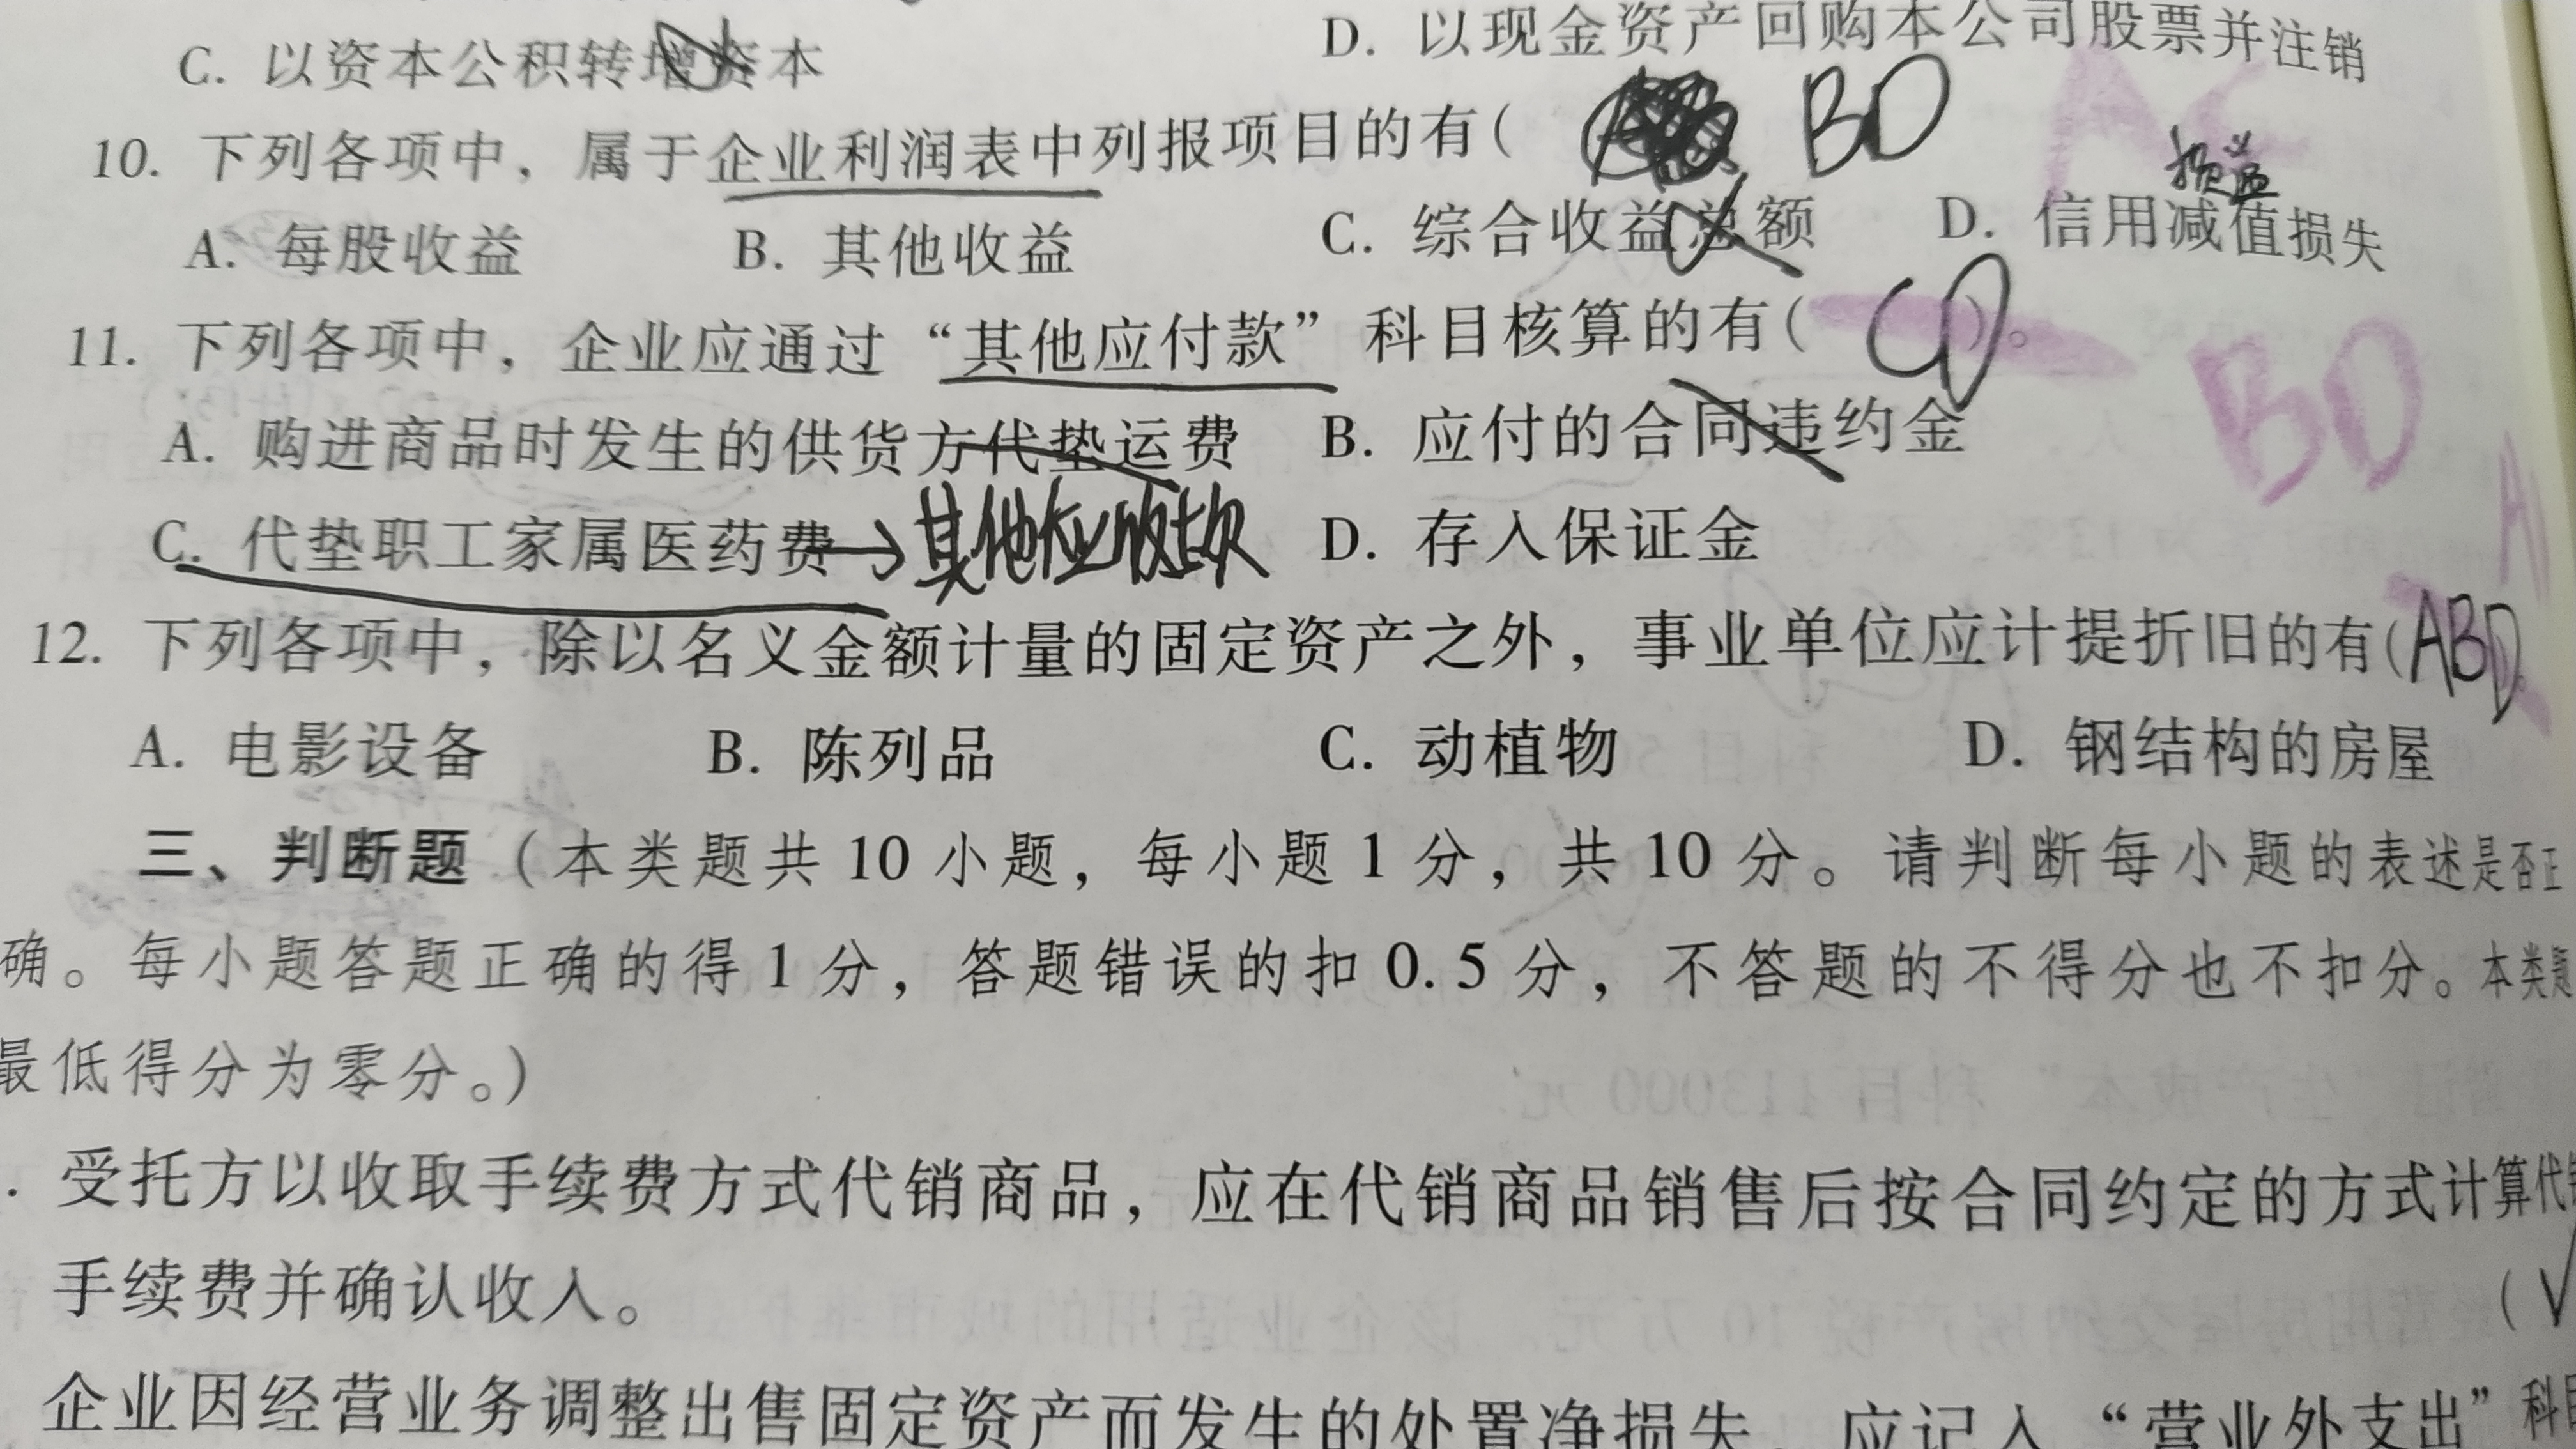 C. 以资本公积转增资本 D. 以现金资产回购本公司股票并注销
10. 下列各项中，属于企业利润表中列报项目的有（ BD
A. 每股收益 B. 其他收益 C. 综合收益总额 D. 信用减值损失
11. 下列各项中，企业应通过“其他应付款”科目核算的有（ CD ）。
BD
A. 购进商品时发生的供货方代垫运费 B. 应付的合同违约金
C. 代垫职工家属医药费→其他应收款 D. 存入保证金
12. 下列各项中，除以名义金额计量的固定资产之外，事业单位应计提折旧的有（ABD
A
A. 电影设备 B. 陈列品 C. 动植物 D. 钢结构的房屋
三、判断题（本类题共 10 小题，每小题 1 分，共 10 分。请判断每小题的表述是否正
确。每小题答题正确的得 1 分，答题错误的扣 0.5 分，不答题的不得分也不扣分。本类题
最低得分为零分。）
. 受托方以收取手续费方式代销商品，应在代销商品销售后按合同约定的方式计算代销
手续费并确认收入。 （√
企业因经营业务调整出售固定资产而发生的处置净损失，应记入“营业外支出”科目